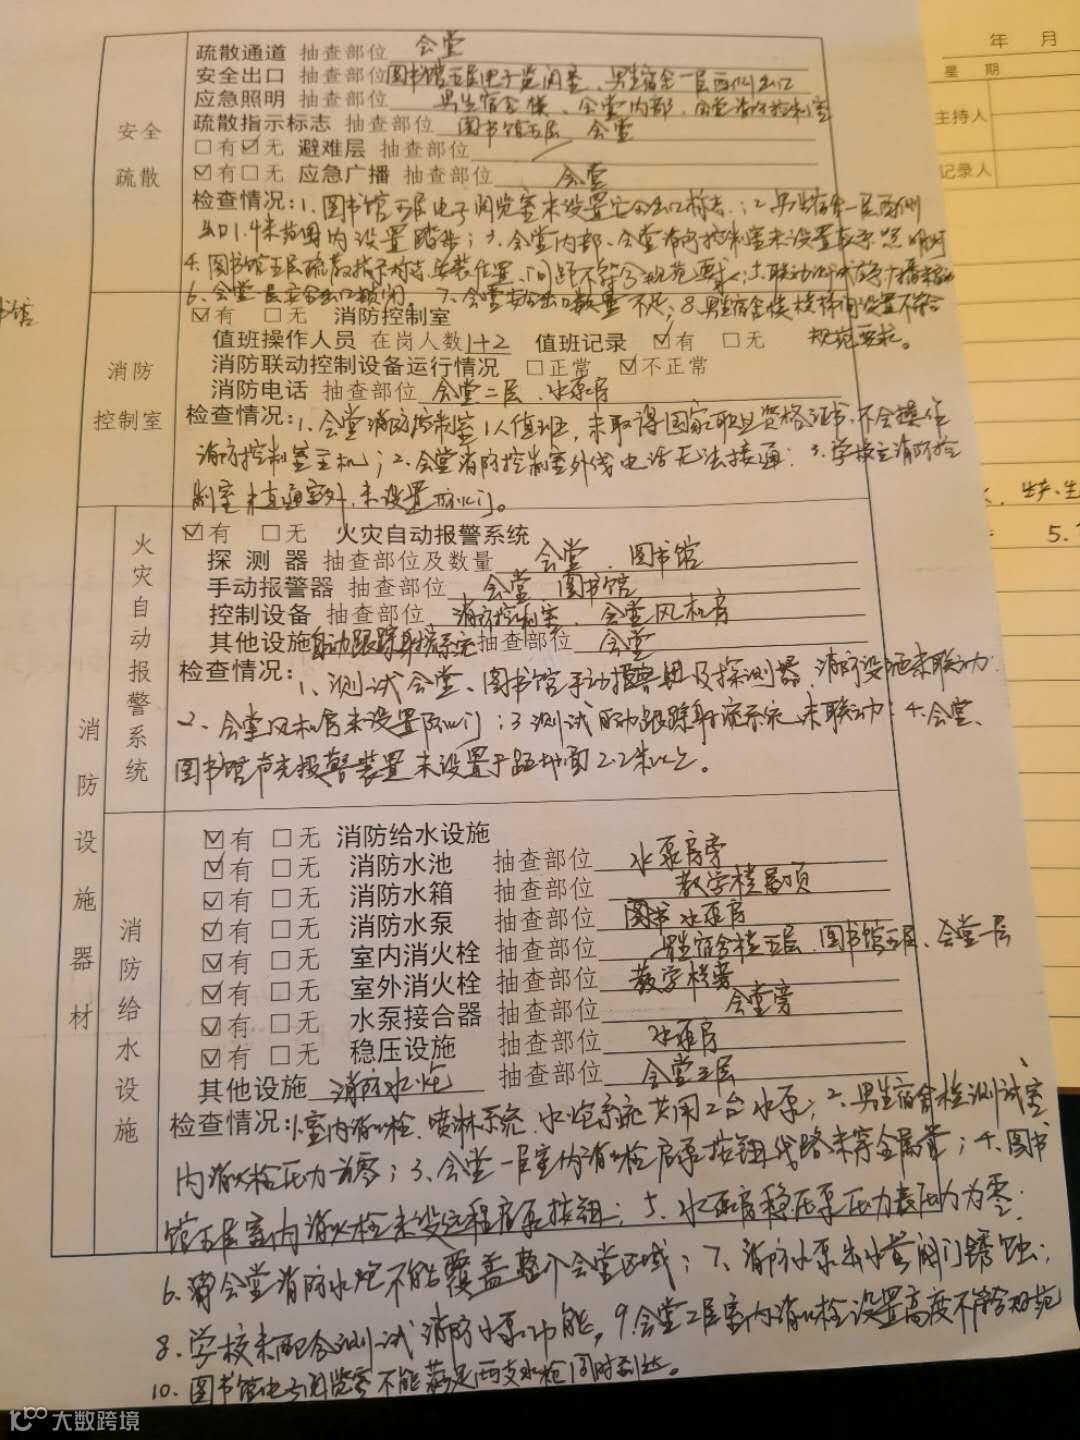 年 月
星 期
主持人
记录人
书馆
5.
安全
疏散
疏散通道 抽查部位 会堂
安全出口 抽查部位 图书馆五层电子览阅室、男生宿舍一层西侧出口
应急照明 抽查部位 男生宿舍楼、会堂内部、会堂消防控制室
疏散指示标志 抽查部位 图书馆五层、会堂
□有☑无 避难层 抽查部位
☑有□无 应急广播 抽查部位 会堂
检查情况:1、图书馆五层电子阅览室未设置安全出口标志;2、男生宿舍一层西侧
出口1.4米范围内设置踏步;3、会堂内部、会堂消防控制室未设置应急照明灯
4、图书馆五层疏散指示标志安装位置、间距不符合规范要求;5、联动测试应急广播未启动
6、会堂一层安全出口锁闭。7、会堂安全出口数量不足;8、男生宿舍楼楼梯间设置不符合
规范要求。
消防
控制室
☑有 □无 消防控制室
值班操作人员 在岗人数 1+2 值班记录 ☑有 □无
消防联动控制设备运行情况 □正常 ☑不正常
消防电话 抽查部位 会堂二层、水泵房
检查情况:1、会堂消防控制室1人值班,未取得国家职业资格证书,不会操作
消防控制室主机;2、会堂消防控制室外线电话无法接通;3、学校主消防控
制室未直通室外,未设置防火门。
消防设施器材
火灾自动报警系统
☑有 □无 火灾自动报警系统
探测器 抽查部位及数量 会堂、图书馆
手动报警器 抽查部位 会堂 图书馆
控制设备 抽查部位 消防控制室、会堂风机房
其他设施 自动跟踪射流系统 抽查部位 会堂
检查情况:1、测试会堂、图书馆手动报警钮及探测器,消防设施未联动;
2、会堂风机房未设置防火门;3、测试自动跟踪射流系统未联动;4、会堂、
图书馆声光报警装置未设置于距地面2.2米以上。
消防给水设施
☑有 □无 消防给水设施
☑有 □无 消防水池 抽查部位 水泵房旁
☑有 □无 消防水箱 抽查部位 教学楼屋顶
☑有 □无 消防水泵 抽查部位 图书 水泵房
☑有 □无 室内消火栓 抽查部位 男生宿舍楼五层、图书馆五层、会堂一层
☑有 □无 室外消火栓 抽查部位 教学楼旁
☑有 □无 水泵接合器 抽查部位 会堂旁
☑有 □无 稳压设施 抽查部位 水泵房
其他设施 消防水炮 抽查部位 会堂三层
检查情况:1、室内消火栓、喷淋系统、水炮系统共用2台水泵;2、男生宿舍楼测试室
内消火栓压力为零;3、会堂一层室内消火栓启泵按钮线路未穿金属管;4、图书
馆五层室内消火栓未设远程启泵按钮;5、水泵房稳压泵压力表压力为零;
6、会堂消防水炮不能覆盖整个会堂区域;7、消防水泵出水管阀门锈蚀;
8、学校未配合测试消防水泵功能,9、会堂二层室内消火栓设置高度不符合规范
10、图书馆电子阅览室不能满足两支水枪同时到达。
大数跨境